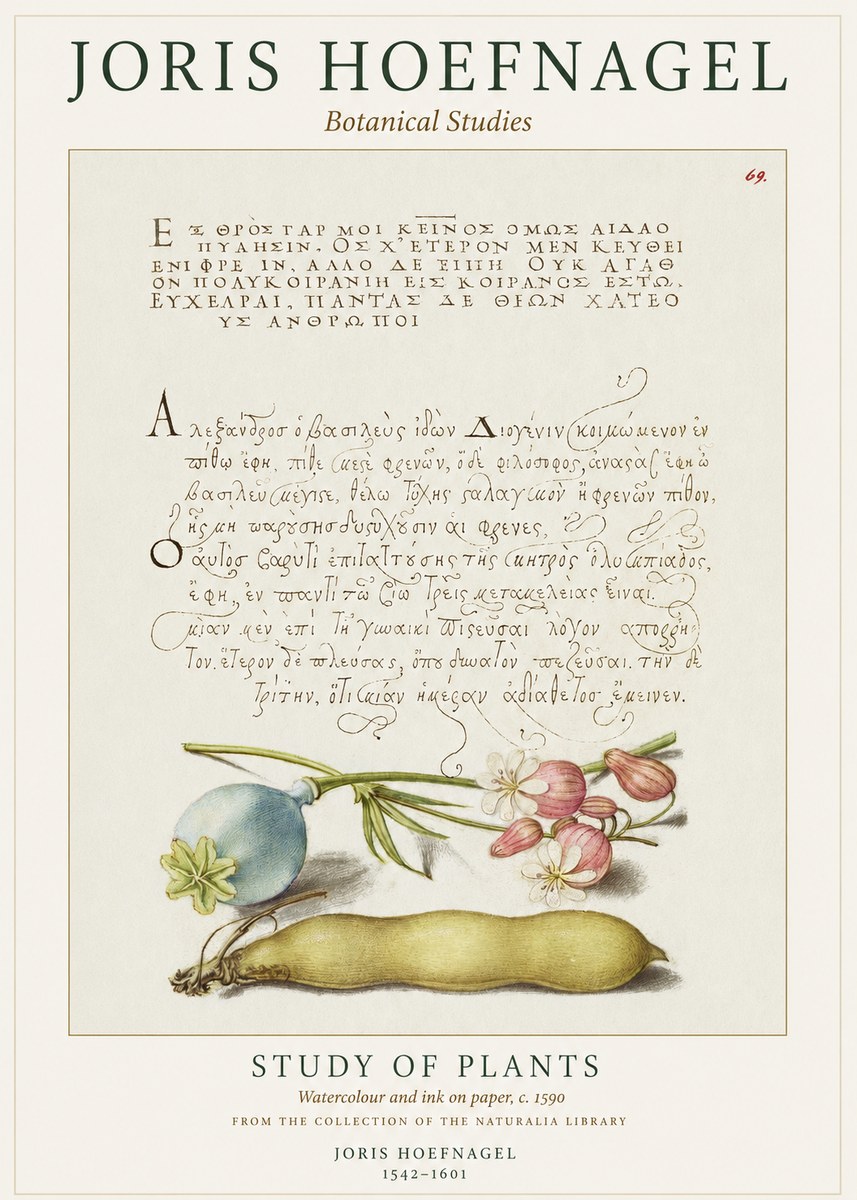 JORIS HOEFNAGEL
Botanical Studies
69.
ΕΞ ΘΡΟΣ ΓΑΡ ΜΟΙ ΚΕΙΝΟΣ ΟΜΩΣ ΑΙΔΑΟ
ΠΥΛΗΣΙΝ, ΟΣ Χ' ΕΤΕΡΟΝ ΜΕΝ ΚΕΥΘΕΙ
ΕΝΙ ΦΡΕ ΙΝ, ΑΛΛΟ ΔΕ ΕΙΠΗ ΟΥΚ ΑΓΑΘ
ΟΝ ΠΟΛΥΚΟΙΡΑΝΙΗ ΕΙΣ ΚΟΙΡΑΝΟΣ ΕΣΤΩ.
ΠΑΝΤΑΣ ΔΕ ΘΕΩΝ ΧΑΤΕΟ
ΥΣ ΑΝΘΡΩΠΟΙ
Αλεξανδρος ὁ βασιλεὺς ἰδὼν κοιμώμενον ἐν
πίθω ἔφη, πίθε φρενῶν, ὁ δὲ φιλόσοφος, ἔφη ὦ
βασιλεῦ θέλω τύχης ἢ φρενῶν πίθον,
ἧς μὴ φρενες,
Ο ἐπιταττούσης τῆς μητρὸς
ἔφη, ἐν παντὶ τῶ βίω τρεῖς μεταμελείας εἶναι.
μίαν μὲν ἐπὶ τῇ γυναικὶ πιστεῦσαι λόγον
τον. ἕτερον δὲ πλεύσας, ὅπου δυνατὸν πεζεῦσαι. τὴν δὲ
τρίτην, ὅτι μίαν ἡμέραν ἀδιάθετος ἔμεινεν.
STUDY OF PLANTS
Watercolour and ink on paper, c. 1590
FROM THE COLLECTION OF THE NATURALIA LIBRARY
JORIS HOEFNAGEL
1542–1601